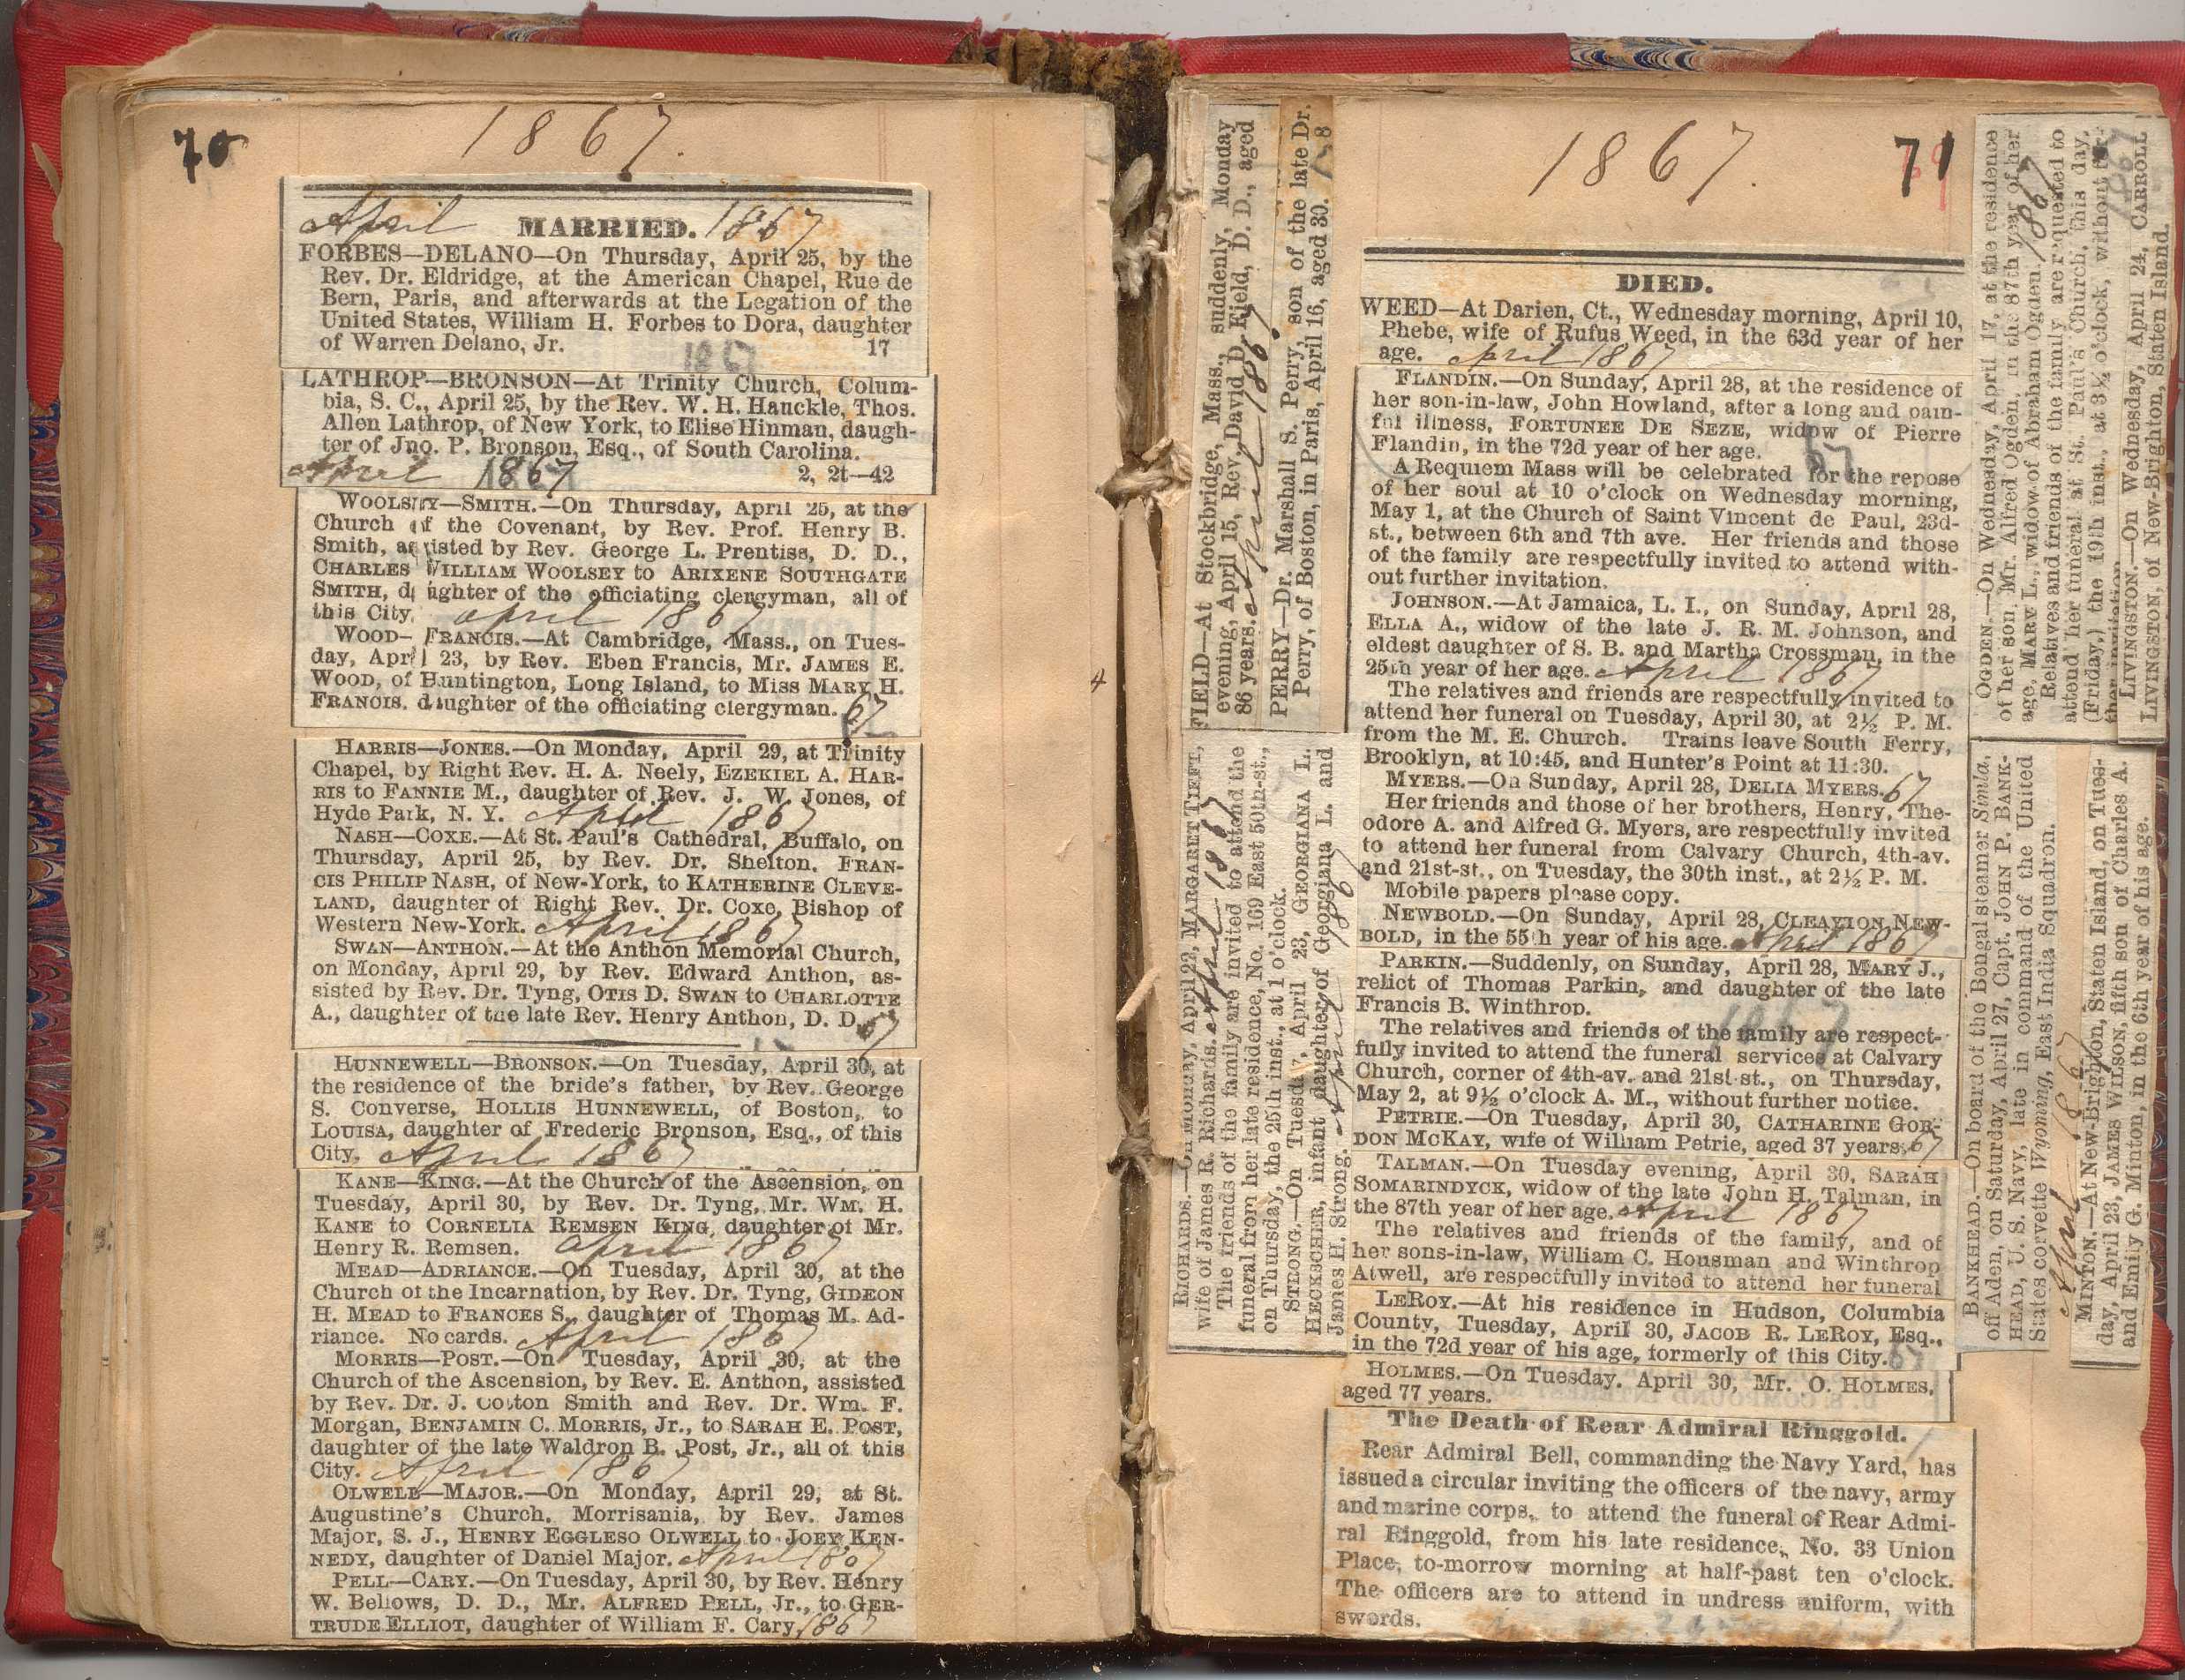 70
1867.
April MARRIED. 1867
FORBES—DELANO—On Thursday, April 25, by the
Rev. Dr. Eldridge, at the American Chapel, Rue de
Bern, Paris, and afterwards at the Legation of the
United States, William H. Forbes to Dora, daughter
of Warren Delano, Jr. 17
1867
LATHROP—BRONSON—At Trinity Church, Colum-
bia, S. C., April 25, by the Rev. W. H. Hauckle, Thos.
Allen Lathrop, of New York, to Elise Hinman, daugh-
ter of Jno. P. Bronson, Esq., of South Carolina.
April 1867 2, 2t—42
WOOLSEY—SMITH.—On Thursday, April 25, at the
Church of the Covenant, by Rev. Prof. Henry B.
Smith, assisted by Rev. George L. Prentiss, D. D.,
CHARLES WILLIAM WOOLSEY to ARIXENE SOUTHGATE
SMITH, daughter of the officiating clergyman, all of
this City. April 1867
WOOD—FRANCIS.—At Cambridge, Mass., on Tues-
day, April 23, by Rev. Eben Francis, Mr. JAMES E.
WOOD, of Huntington, Long Island, to Miss MARY H.
FRANCIS, daughter of the officiating clergyman. 67
HARRIS—JONES.—On Monday, April 29, at Trinity
Chapel, by Right Rev. H. A. Neely, EZEKIEL A. HAR-
RIS to FANNIE M., daughter of Rev. J. W. Jones, of
Hyde Park, N. Y. April 1867
NASH—COXE.—At St. Paul's Cathedral, Buffalo, on
Thursday, April 25, by Rev. Dr. Shelton, FRAN-
CIS PHILIP NASH, of New-York, to KATHERINE CLEVE-
LAND, daughter of Right Rev. Dr. Coxe, Bishop of
Western New-York. April 1867
SWAN—ANTHON.—At the Anthon Memorial Church,
on Monday, April 29, by Rev. Edward Anthon, as-
sisted by Rev. Dr. Tyng, OTIS D. SWAN to CHARLOTTE
A., daughter of the late Rev. Henry Anthon, D. D. 67
HUNNEWELL—BRONSON.—On Tuesday, April 30, at
the residence of the bride's father, by Rev. George
S. Converse, HOLLIS HUNNEWELL, of Boston, to
LOUISA, daughter of Frederic Bronson, Esq., of this
City. April 1867
KANE—KING.—At the Church of the Ascension, on
Tuesday, April 30, by Rev. Dr. Tyng, Mr. WM. H.
KANE to CORNELIA REMSEN KING, daughter of Mr.
Henry R. Remsen. April 1867
MEAD—ADRIANCE.—On Tuesday, April 30, at the
Church of the Incarnation, by Rev. Dr. Tyng, GIDEON
H. MEAD to FRANCES S., daughter of Thomas M. Ad-
riance. No cards. April 1867
MORRIS—POST.—On Tuesday, April 30, at the
Church of the Ascension, by Rev. E. Anthon, assisted
by Rev. Dr. J. Cotton Smith and Rev. Dr. Wm. F.
Morgan, BENJAMIN C. MORRIS, Jr., to SARAH E. POST,
daughter of the late Waldron B. Post, Jr., all of this
City. April 1867
OLWELL—MAJOR.—On Monday, April 29, at St.
Augustine's Church, Morrisania, by Rev. James
Major, S. J., HENRY EGGLESO OLWELL to JOEY KEN-
NEDY, daughter of Daniel Major. April 1867
PELL—CARY.—On Tuesday, April 30, by Rev. Henry
W. Bellows, D. D., Mr. ALFRED PELL, Jr., to GER-
TRUDE ELLIOT, daughter of William F. Cary. 1867
1867.
71
FIELD—At Stockbridge, Mass., suddenly, Monday
evening, April 15, Rev. David D. Field, D. D., aged
86 years. April 1867
PERRY—Dr. Marshall S. Perry, son of the late Dr.
Perry, of Boston, in Paris, April 16, aged 30.
RICHARDS.—On Monday, April 22, MARGARET TIFFT,
wife of James R. Richards. April 1867
The friends of the family are invited to attend the
funeral from her late residence, No. 169 East 50th-st.,
on Thursday, the 25th inst., at 1 o'clock.
STRONG.—On Tuesday, April 23, GEORGIANA L.
HECKSCHER, infant daughter of Georgiana L. and
James H. Strong. April 1867
DIED.
WEED—At Darien, Ct., Wednesday morning, April 10,
Phebe, wife of Rufus Weed, in the 63d year of her
age. April 1867
FLANDIN.—On Sunday, April 28, at the residence of
her son-in-law, John Howland, after a long and pain-
ful illness, FORTUNEE DE SEZE, widow of Pierre
Flandin, in the 72d year of her age.
67
A Requiem Mass will be celebrated for the repose
of her soul at 10 o'clock on Wednesday morning,
May 1, at the Church of Saint Vincent de Paul, 23d-
st., between 6th and 7th ave. Her friends and those
of the family are respectfully invited to attend with-
out further invitation.
JOHNSON.—At Jamaica, L. I., on Sunday, April 28,
ELLA A., widow of the late J. R. M. Johnson, and
eldest daughter of S. B. and Martha Crossman, in the
25th year of her age. April 1867
The relatives and friends are respectfully invited to
attend her funeral on Tuesday, April 30, at 2½ P. M.
from the M. E. Church. Trains leave South Ferry,
Brooklyn, at 10:45, and Hunter's Point at 11:30.
MYERS.—On Sunday, April 28, DELIA MYERS. 67
Her friends and those of her brothers, Henry, The-
odore A. and Alfred G. Myers, are respectfully invited
to attend her funeral from Calvary Church, 4th-av.
and 21st-st., on Tuesday, the 30th inst., at 2½ P. M.
Mobile papers please copy.
NEWBOLD.—On Sunday, April 28, CLEAYTON NEW-
BOLD, in the 55th year of his age. April 1867
PARKIN.—Suddenly, on Sunday, April 28, MARY J.,
relict of Thomas Parkin, and daughter of the late
Francis B. Winthrop.
1867
The relatives and friends of the family are respect-
fully invited to attend the funeral services at Calvary
Church, corner of 4th-av. and 21st-st., on Thursday,
May 2, at 9½ o'clock A. M., without further notice.
PETRIE.—On Tuesday, April 30, CATHARINE GOR-
DON MCKAY, wife of William Petrie, aged 37 years. 67
TALMAN.—On Tuesday evening, April 30, SARAH
SOMARINDYCK, widow of the late John H. Talman, in
the 87th year of her age. April 1867
The relatives and friends of the family, and of
her sons-in-law, William C. Housman and Winthrop
Atwell, are respectfully invited to attend her funeral
LEROY.—At his residence in Hudson, Columbia
County, Tuesday, April 30, JACOB R. LEROY, Esq.,
in the 72d year of his age, formerly of this City. 67
HOLMES.—On Tuesday, April 30, Mr. O. HOLMES,
aged 77 years.
The Death of Rear Admiral Ringgold.
Rear Admiral Bell, commanding the Navy Yard, has
issued a circular inviting the officers of the navy, army
and marine corps, to attend the funeral of Rear Admi-
ral Ringgold, from his late residence, No. 33 Union
Place, to-morrow morning at half-past ten o'clock.
The officers are to attend in undress uniform, with
swords.
OGDEN.—On Wednesday, April 17, at the residence
of her son, Mr. Alfred Ogden, in the 87th year of her
age, MARY L., widow of Abraham Ogden. 1867
Relatives and friends of the family are requested to
attend her funeral at St. Paul's Church, this day,
(Friday,) the 19th inst., at 3¼ o'clock, without fur-
ther invitation.
LIVINGSTON.—On Wednesday, April 24, CARROLL
LIVINGSTON, of New-Brighton, Staten Island.
BANKHEAD.—On board of the Bengal steamer Simla,
off Aden, on Saturday, April 27, Capt. JOHN P. BANK-
HEAD, U. S. Navy, late in command of the United
States corvette Wyoming, East India Squadron.
April 1867
MINTON.—At New-Brighton, Staten Island, on Tues-
day, April 23, JAMES WILSON, fifth son of Charles A.
and Emily G. Minton, in the 6th year of his age.